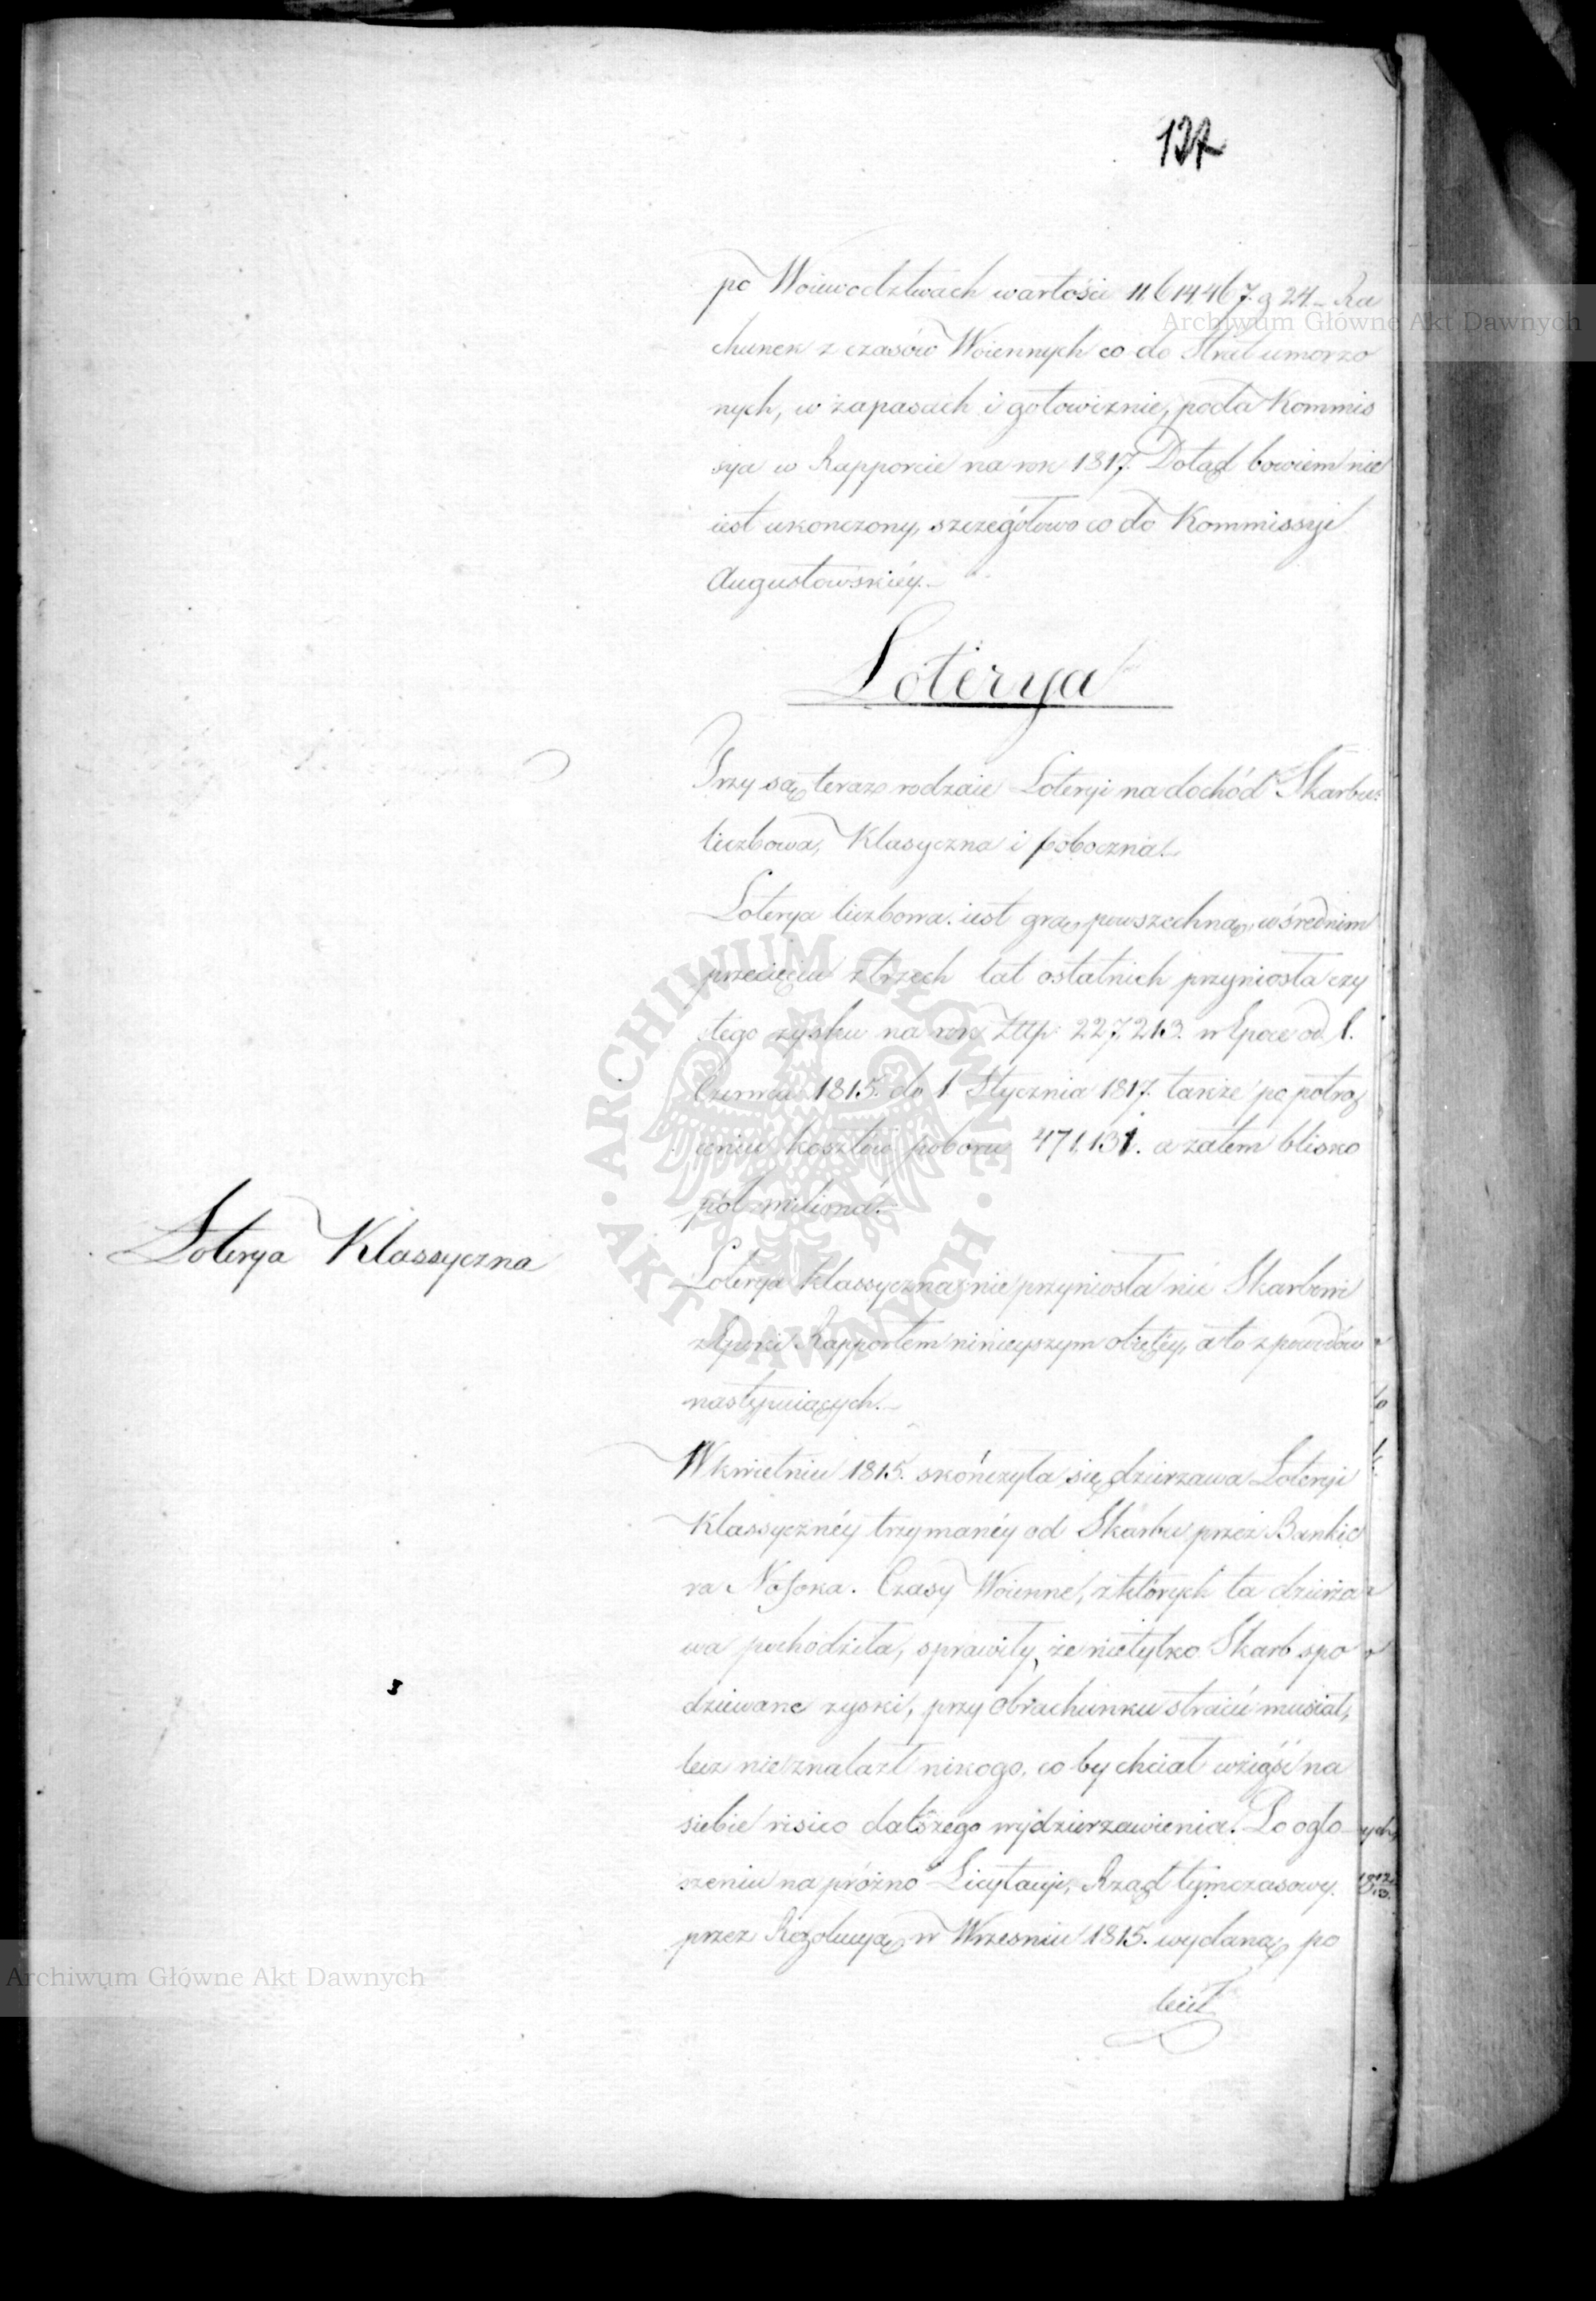 137
po Woiewodztwach wartości 11,614,467. g 24. Ra
chunek z czasów Woiennych co do Strat umorzo
nych, w zapasach i gotowiznie, poda Kommis
sya w Rapporcie na rok 1817. Dotąd bowiem nie
iest ukonczony, szczegółowo co do Kommissyi
Augustowskiéy.
Loterya
Trzy są teraz rodzaie Loteryi na dochód Skarbu:
liczbowa, Klasyczna i poboczna.
Loterya liczbowa iest grą powszechną, w średnim
przecięciu z trzech lat ostatnich przyniosła czy
stego zysku na rok Złtp: 227,213. w Epoce od 1.
Czerwca 1815. do 1. Stycznia 1817. także po potrą
ceniu kosztów poboru 471,131. a zatem blisko
pół miliona.
Loterya Klassyczna
Loterya klassyczna nie przyniosła nic Skarbowi
z Epoki Rapportem ninieyszym obiętéy, a to z powodów
następuiących.
W kwietniu 1815. skończyła się dzierzawa Loteryi
Klassycznéy trzymanéy od Skarbu przez Bankie
ra Nossoka. Czasy Woienne, z których ta dzierża
wa pochodziła, sprawiły, że nietylko Skarb spo
dziewane zyski, przy obrachunku stracić musiał,
lecz nie znalazł nikogo, co by chciał wziąść na
siebie risico dalszego wydzierzawienia. Po ogło
szeniu na próżno Licytacyi, Rząd tymczasowy
przez Rezolucyą w Wrzesniu 1815. wydaną po
lecił
Archiwum Główne Akt Dawnych
Archiwum Główne Akt Dawnych
ARCHIWUM GŁÓWNE AKT DAWNYCH